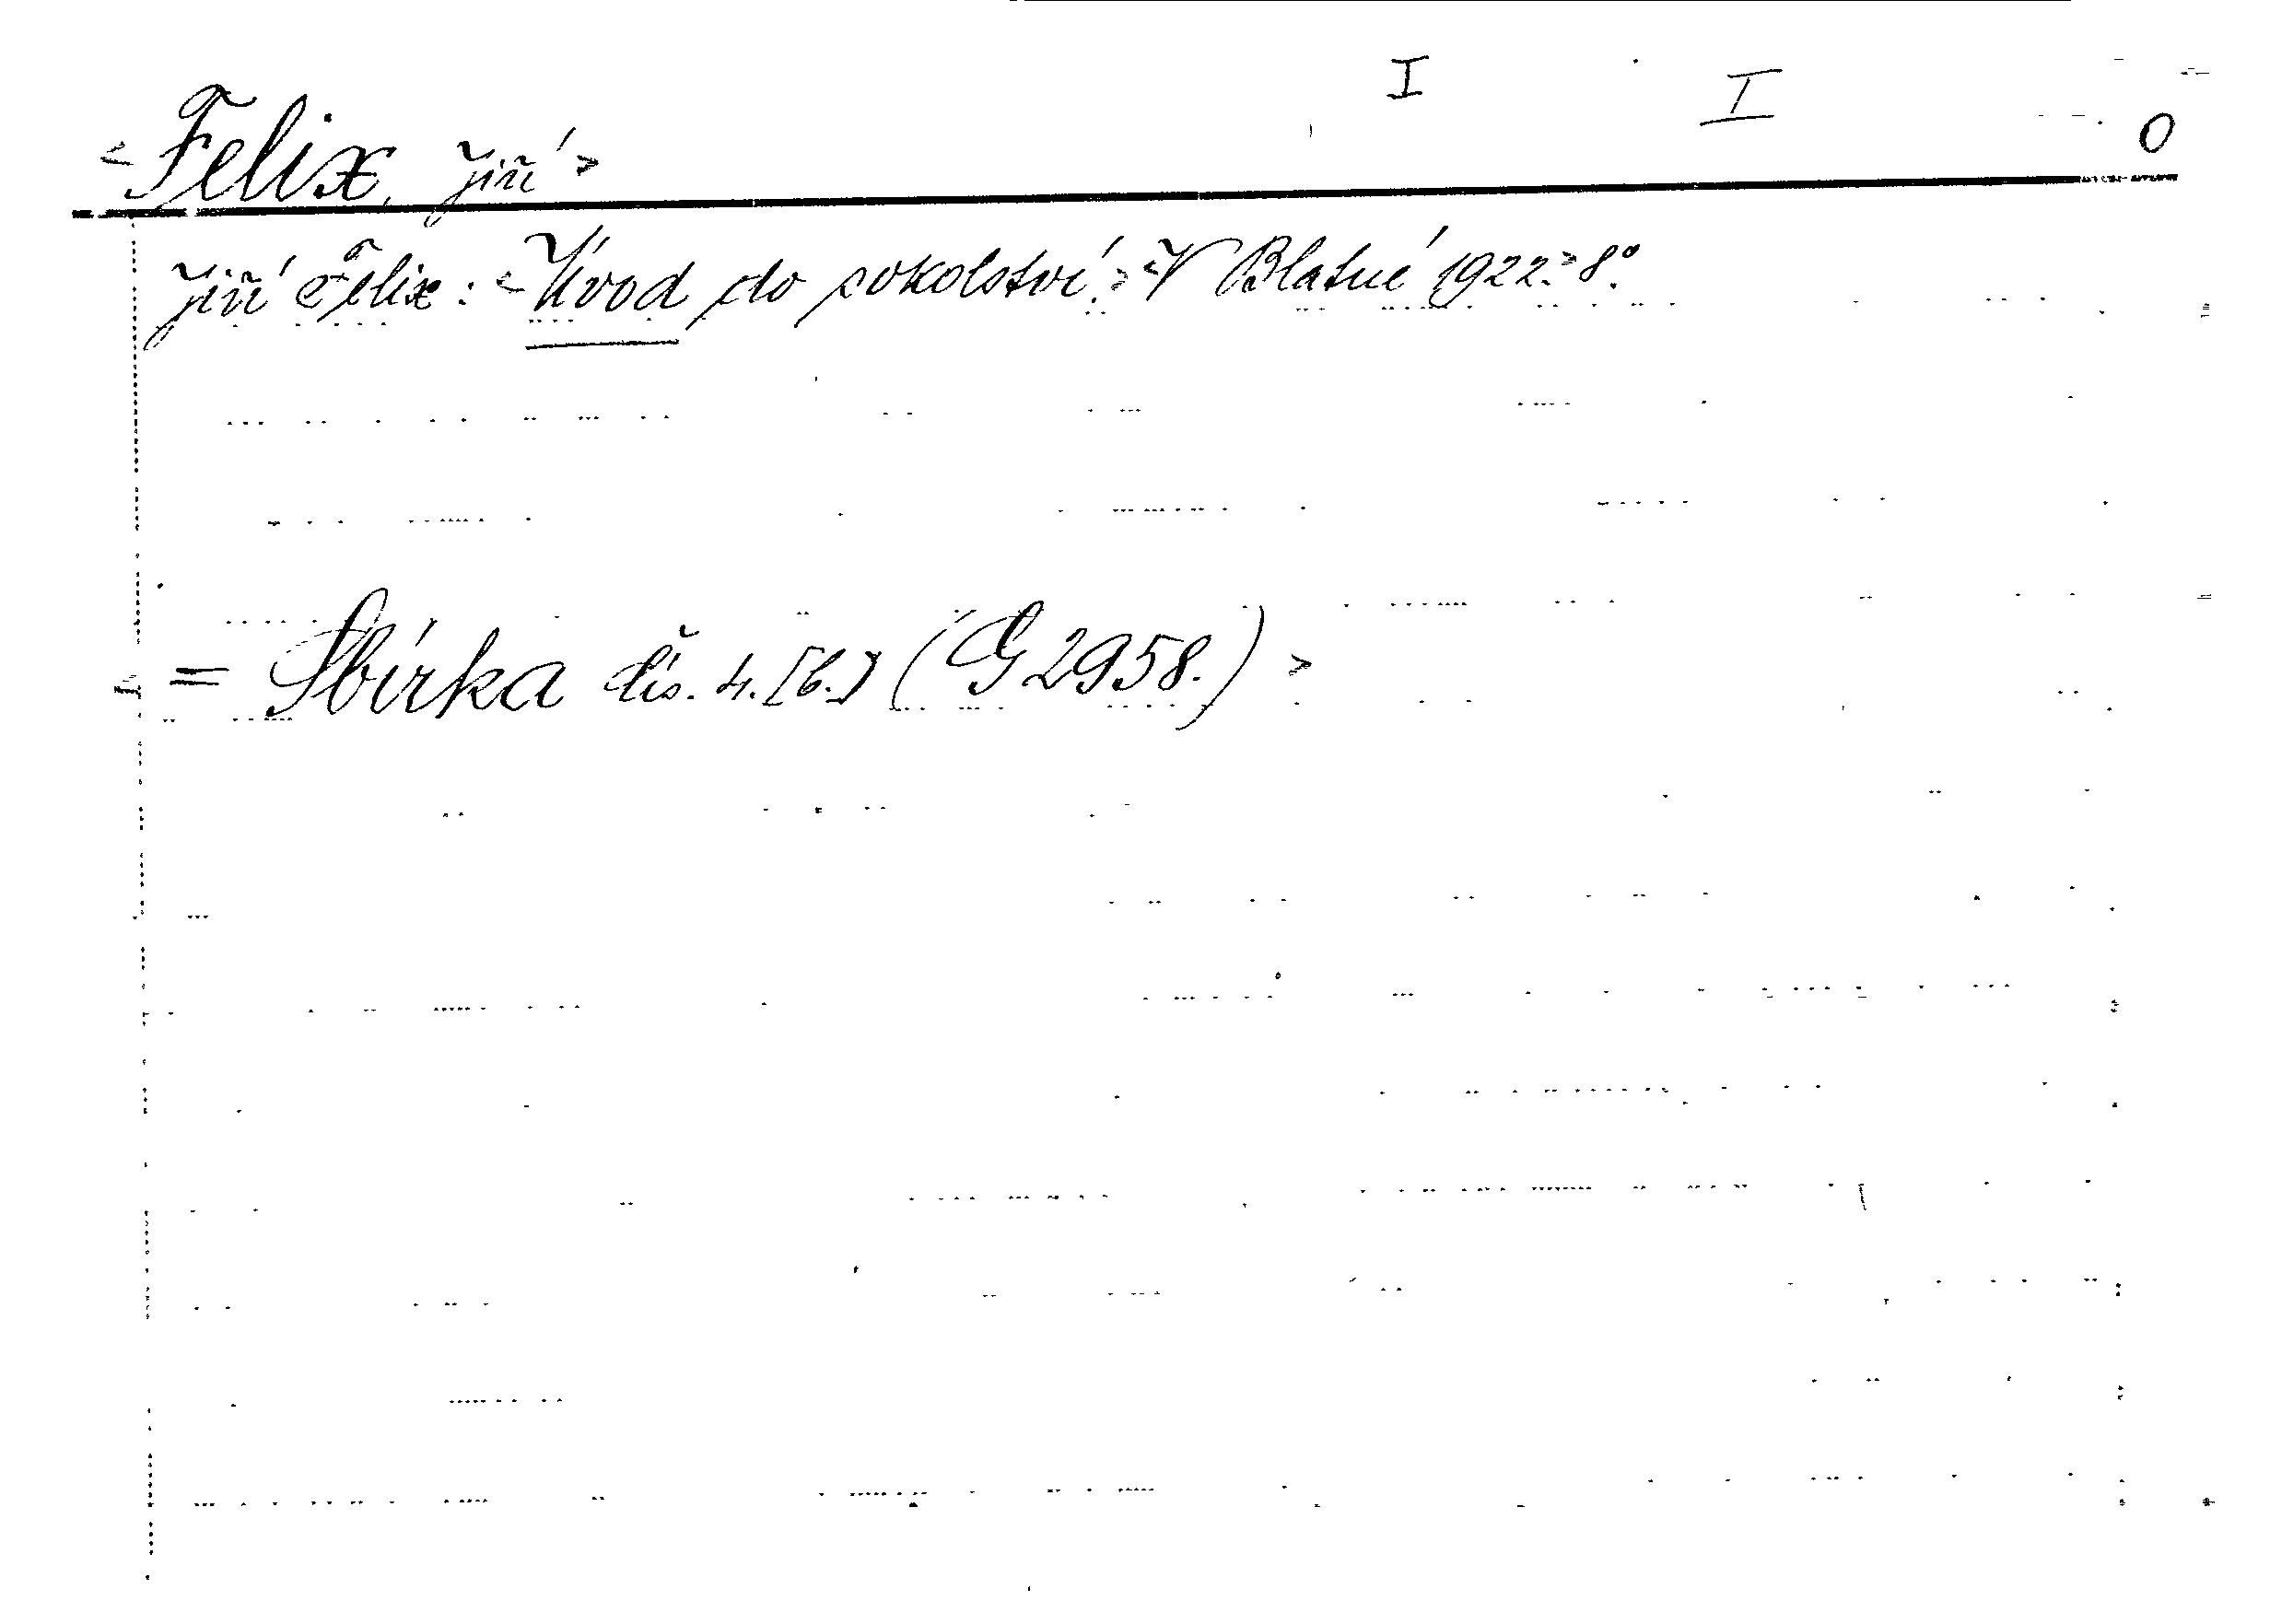 I I O
<Felix, Jiří>
Jiří Felix: <Úvod do sokolství.> <V Blatné 1922.> 8°.
= Sbírka čís. 4. [6.] (G 2958.) >